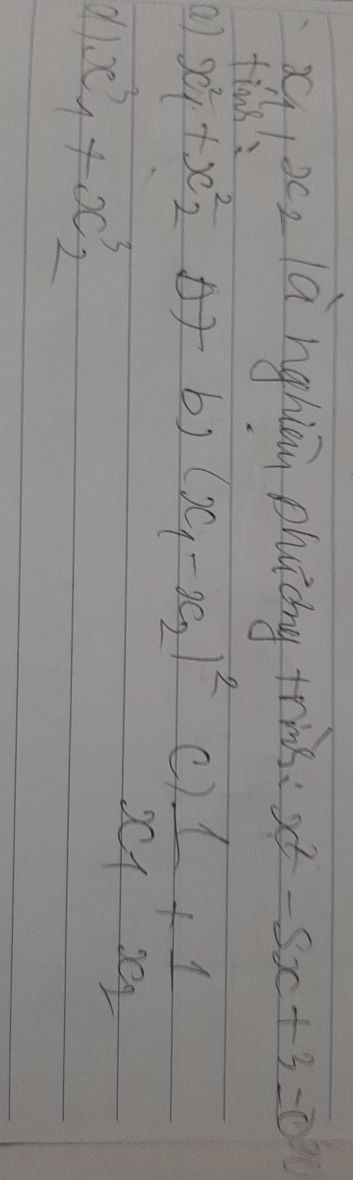 x₁, x₂ là nghiệm phương trình: x² - 5x + 3 = 0
tính:
a) x₁² + x₂² b) (x₁ - x₂)² c) 1/x₁ + 1/x₂
d) x₁³ + x₂³